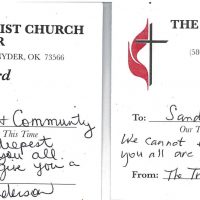 IST CHURCH
R
NYDER, OK 73566
rd
& Community
This Time
deepest
you all.
give you a
nderson
THE
(58
To: Sand
Our T
We cannot
you all are
From: The Tr